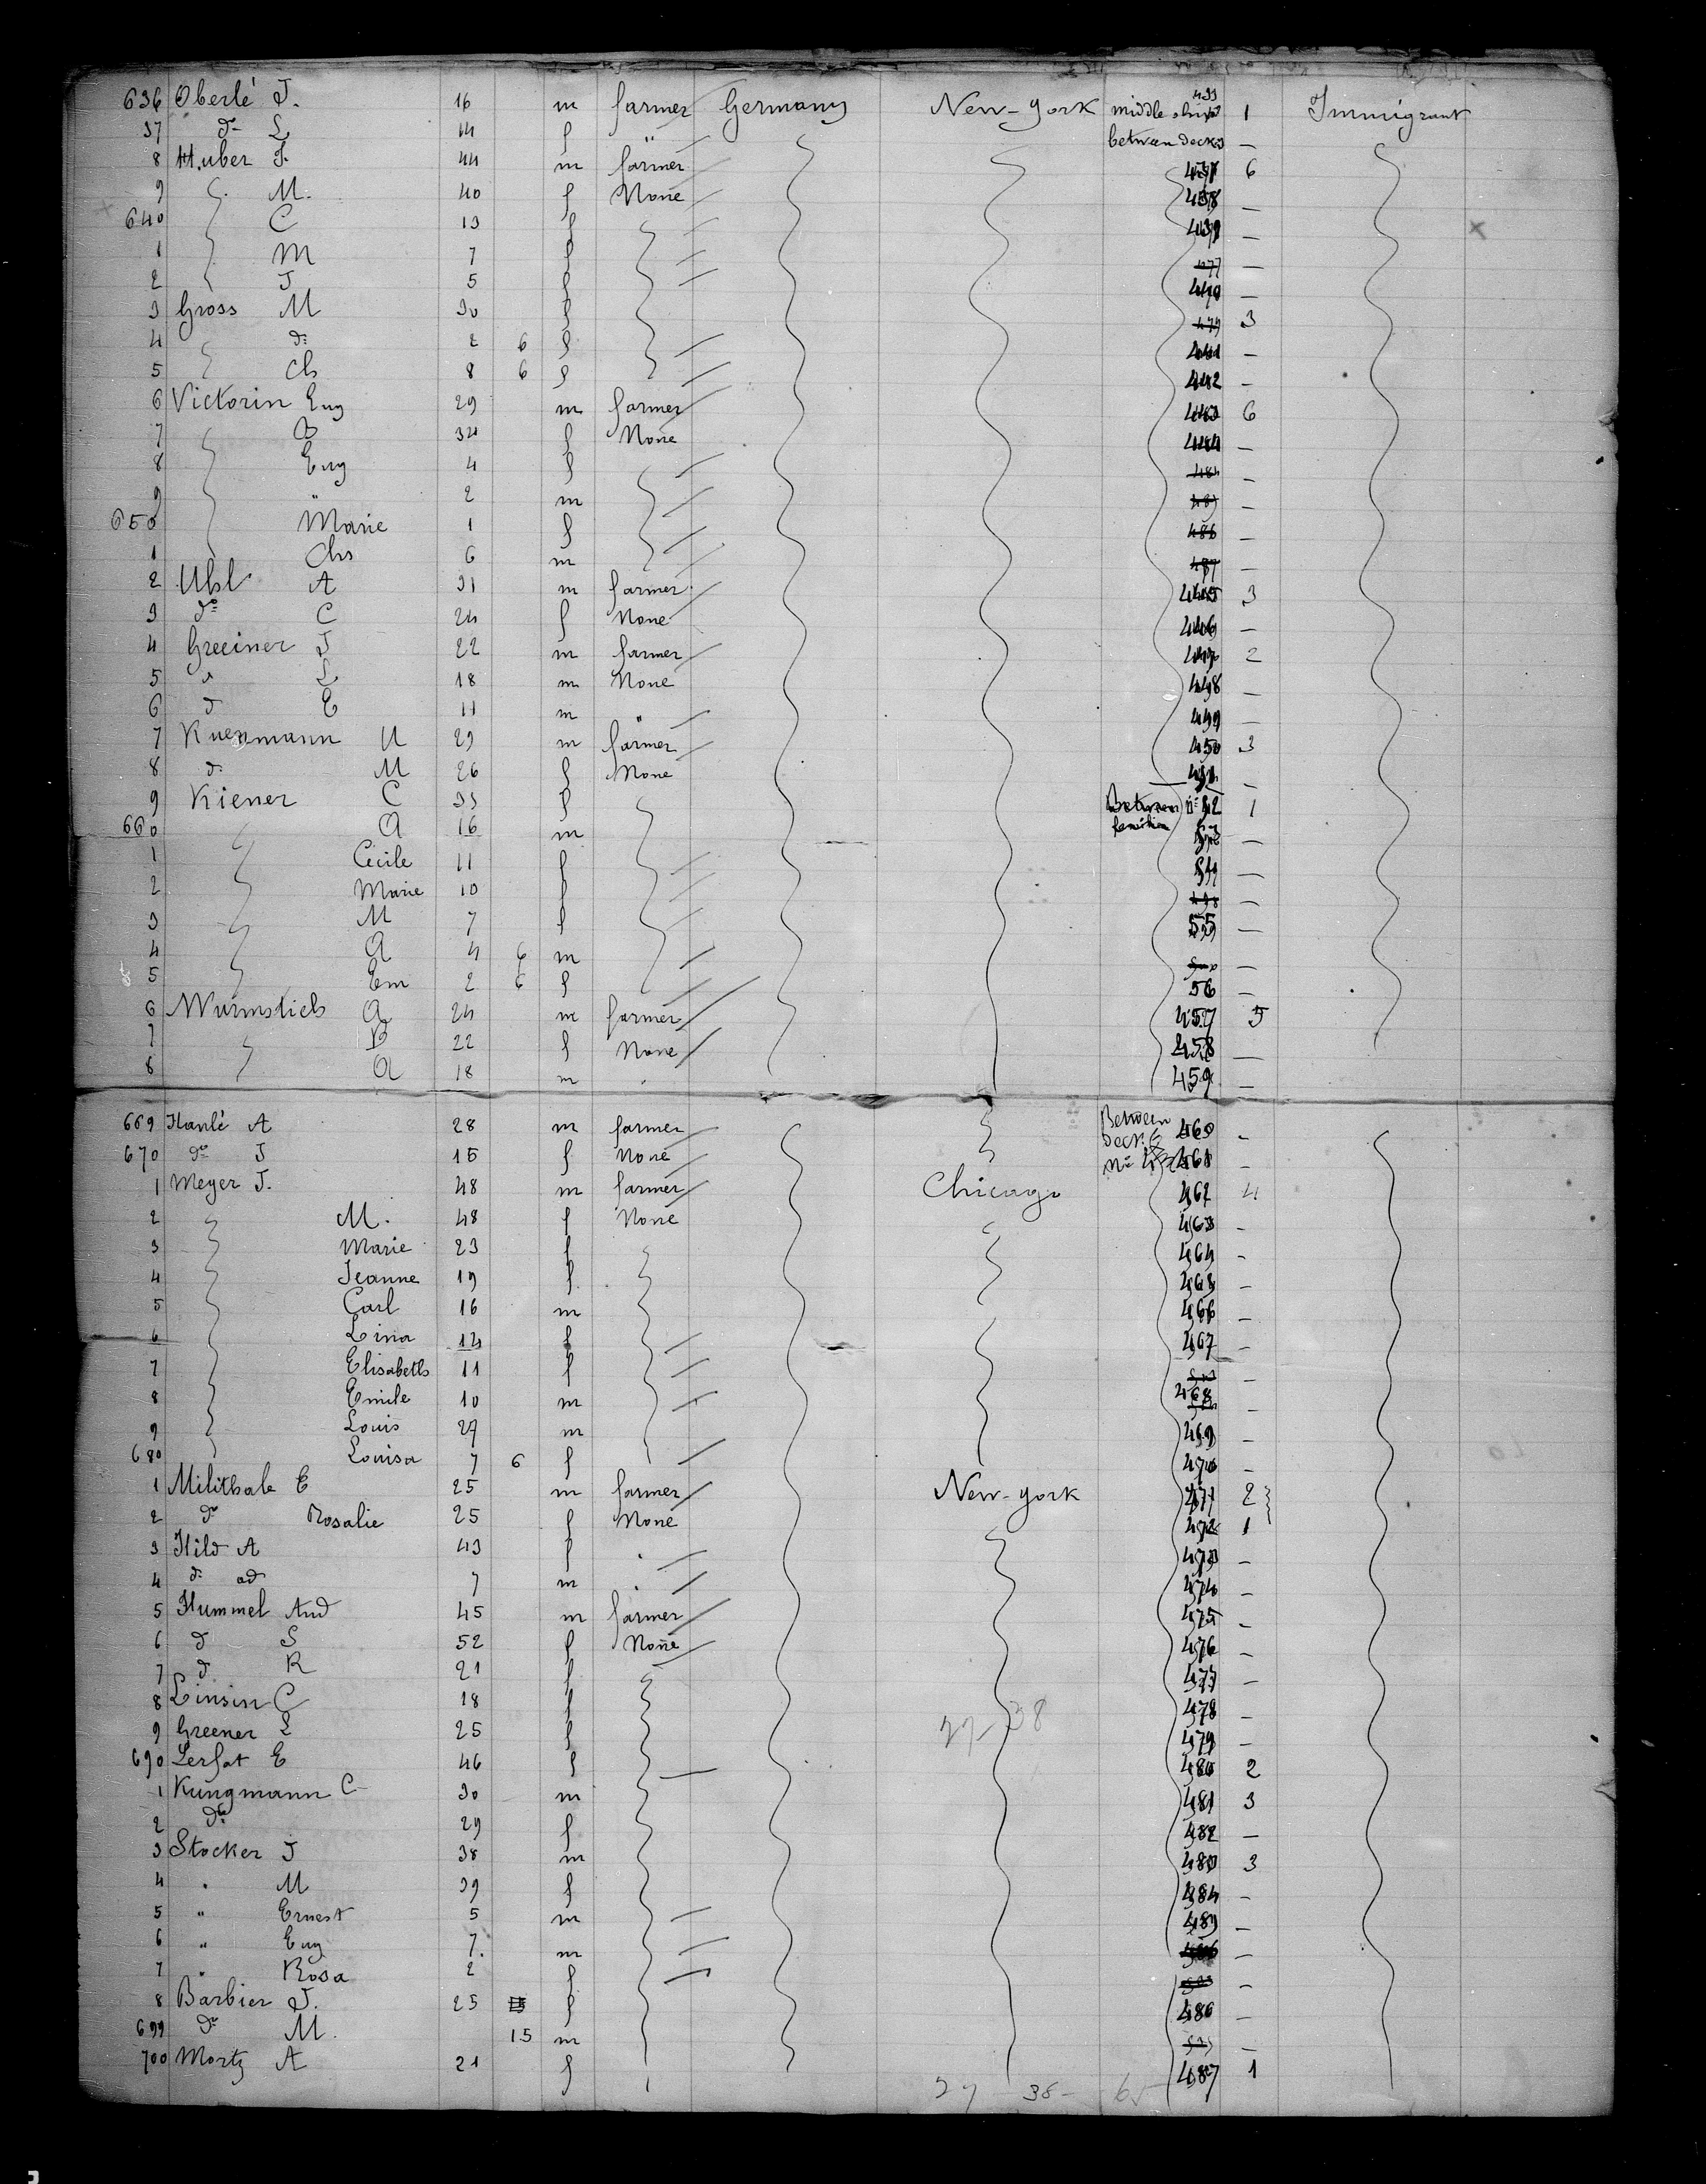 636 Oberlé J. 16 m farmer Germany New-York middle ship 1 Immigrant
37 do L 14 f " between decks —
8 Huber J. 44 m farmer 6
9 M. 40 f None 438 —
640 C 13 f 439 —
1 M 7 f —
2 J 5 f 440 —
3 Gross M 30 f 3
4 do 2 6 f 441 —
5 Ch 8 6 f 442 —
6 Victorin Eug 29 m farmer 443 6
7 B 34 f None 444 —
8 Eug 4 f —
9 " 2 m —
650 Marie 1 f 486 —
1 Chs 6 m 487 —
2 Uhl A 31 m farmer 445 3
3 do C 24 f None 446 —
4 Greeiner J 22 m farmer 447 2
5 " L 18 m None 448 —
6 d E 11 m " 449 —
7 Kuenmann U 29 m farmer 450 3
8 d: M 26 f None —
9 Kiener C 35 f Between 1
660 A 16 m —
1 Cécile 11 f —
2 Marie 10 f —
3 M 7 f 55 —
4 A 4 6 m —
5 Em 2 6 f 56 —
6 Wurmstich A 24 m farmer 457 5
7 B 22 f None 458 —
8 A 18 m 459 —
669 Hanlé A 28 m farmer Between 460 -
670 do J 15 f None deck 461 -
1 Meyer J. 48 m farmer Chicago 462 4
2 M. 48 f None 463 -
3 Marie 23 f 464 -
4 Jeanne 19 f 465 -
5 Carl 16 m 466 -
6 Lina 14 f 467 -
7 Elisabeth 11 f —
8 Emile 10 m 468 -
9 Louis 27 m 469 -
680 Louisa 7 6 f 470 -
1 Milithale E 25 m farmer New-York 471 2
2 do Rosalie 25 f None 472 1
3 Hild A 43 f 473 —
4 d: ad 7 m 474 -
5 Hummel And 45 m farmer 475 -
6 d S 52 f None 476 -
7 d. R 21 f 477 -
8 Linsin C 18 f 478 -
9 Greener L 25 f 38 479 -
690 Lerfat E 46 f 480 2
1 Kungmann C 30 m 481 3
2 do 29 f 482 —
3 Stocker J 38 m 483 3
4 " M 39 f 484 -
5 " Ernest 5 m 485 —
6 " Eug 7. m —
7 " Rosa 2 f —
8 Barbier J. 25 f 486 —
699 do M. 15 m —
700 Mortz A 21 f 487 1
27 38- 65